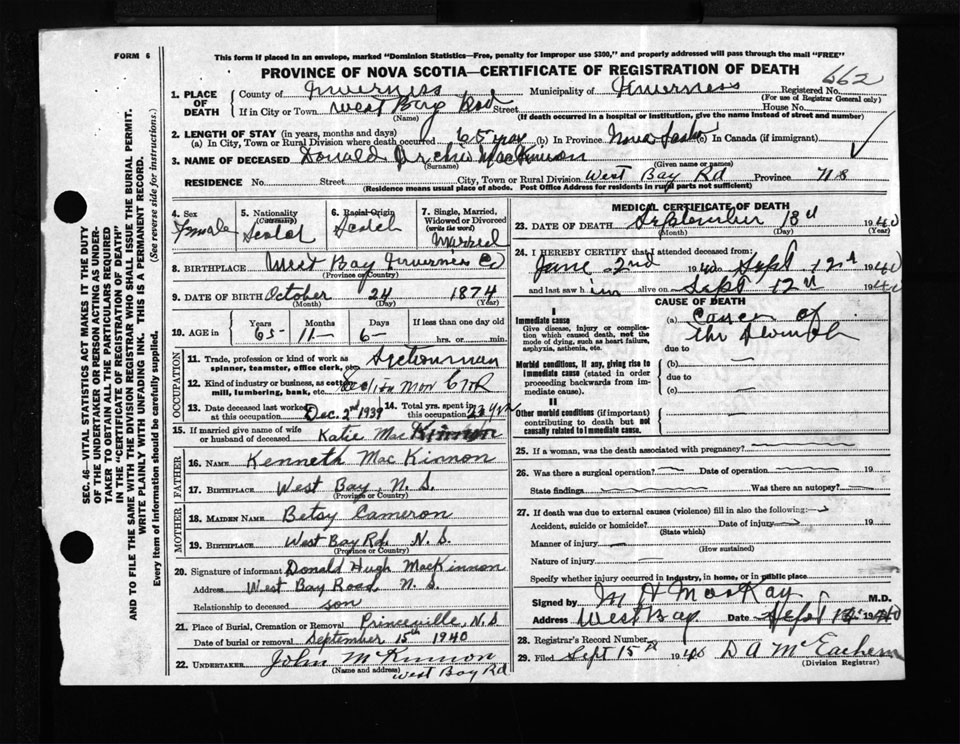 FORM 6
This form if placed in an envelope, marked "Dominion Statistics—Free, penalty for improper use $300," and properly addressed will pass through the mail "FREE"
PROVINCE OF NOVA SCOTIA—CERTIFICATE OF REGISTRATION OF DEATH
662
1. PLACE OF DEATH County of Inverness Municipality of Inverness Registered No.
(For use of Registrar General only)
If in City or Town West Bay Road Street House No.
(Name) (If death occurred in a hospital or institution, give the name instead of street and number)
2. LENGTH OF STAY (in years, months and days)
(a) In City, Town or Rural Division where death occurred 65 (b) In Province Nova Scotia (c) In Canada (if immigrant)
3. NAME OF DECEASED Donald Archie MacKinnon
(Surname) (Given name or names)
RESIDENCE No. Street City, Town or Rural Division West Bay Rd Province N S
(Residence means usual place of abode. Post Office Address for residents in rural parts not sufficient)
4. Sex
5. Nationality (Citizenship) Scotch
6. Racial Origin Scotch
7. Single, Married, Widowed or Divorced (write the word) Married
8. BIRTHPLACE West Bay Inverness Co
(Province or Country)
9. DATE OF BIRTH October 24 1874
(Month) (Day) (Year)
10. AGE in Years Months Days If less than one day old
65 11 6 hrs. or min.
OCCUPATION
11. Trade, profession or kind of work as spinner, teamster, office clerk, etc. Sectionman
12. Kind of industry or business, as cotton mill, lumbering, bank, etc. C N R
13. Date deceased last worked at this occupation Dec. 2nd 1939 14. Total yrs. spent in this occupation 23 yrs
15. If married give name of wife or husband of deceased Katie MacKinnon
FATHER
16. NAME Kenneth MacKinnon
17. BIRTHPLACE West Bay, N. S.
(Province or Country)
MOTHER
18. MAIDEN NAME Betsy Cameron
19. BIRTHPLACE West Bay Rd. N. S.
(Province or Country)
20. Signature of informant Donald Hugh MacKinnon
Address West Bay Road, N. S.
Relationship to deceased son
21. Place of Burial, Cremation or Removal Princeville, N.S
Date of burial or removal September 15th 1940
22. UNDERTAKER John McKinnon
(Name and address) West Bay Rd
MEDICAL CERTIFICATE OF DEATH
23. DATE OF DEATH September 13th 1940
(Month) (Day) (Year)
24. I HEREBY CERTIFY that I attended deceased from:
June 2nd 1940 Sept 12th 1940
and last saw him alive on Sept 12th 1940
CAUSE OF DEATH
I
Immediate cause
Give disease, injury or complication which caused death, not the mode of dying, such as heart failure, asphyxia, asthenia, etc.
(a) Cancer of the Stomach
due to
Morbid conditions, if any, giving rise to immediate cause (stated in order proceeding backwards from immediate cause).
(b)
due to
(c)
II
Other morbid conditions (if important) contributing to death but not causally related to immediate cause.
25. If a woman, was the death associated with pregnancy?
26. Was there a surgical operation? Date of operation 19
State findings Was there an autopsy?
27. If death was due to external causes (violence) fill in also the following:
Accident, suicide or homicide? Date of injury 19
(State which)
Manner of injury
(How sustained)
Nature of injury
Specify whether injury occurred in industry, in home, or in public place
Signed by M H MacKay M.D.
Address West Bay Date Sept 1940
28. Registrar's Record Number
29. Filed Sept 15th 1940 D A McEachern
(Division Registrar)
SEC. 46—VITAL STATISTICS ACT MAKES IT THE DUTY
OF THE UNDERTAKER OR PERSON ACTING AS UNDER-
TAKER TO OBTAIN ALL THE PARTICULARS REQUIRED
IN THE "CERTIFICATE OF REGISTRATION OF DEATH"
AND TO FILE THE SAME WITH THE DIVISION REGISTRAR WHO SHALL ISSUE THE BURIAL PERMIT.
WRITE PLAINLY WITH UNFADING INK. THIS IS A PERMANENT RECORD.
Every item of information should be carefully supplied. (See reverse side for instructions.)